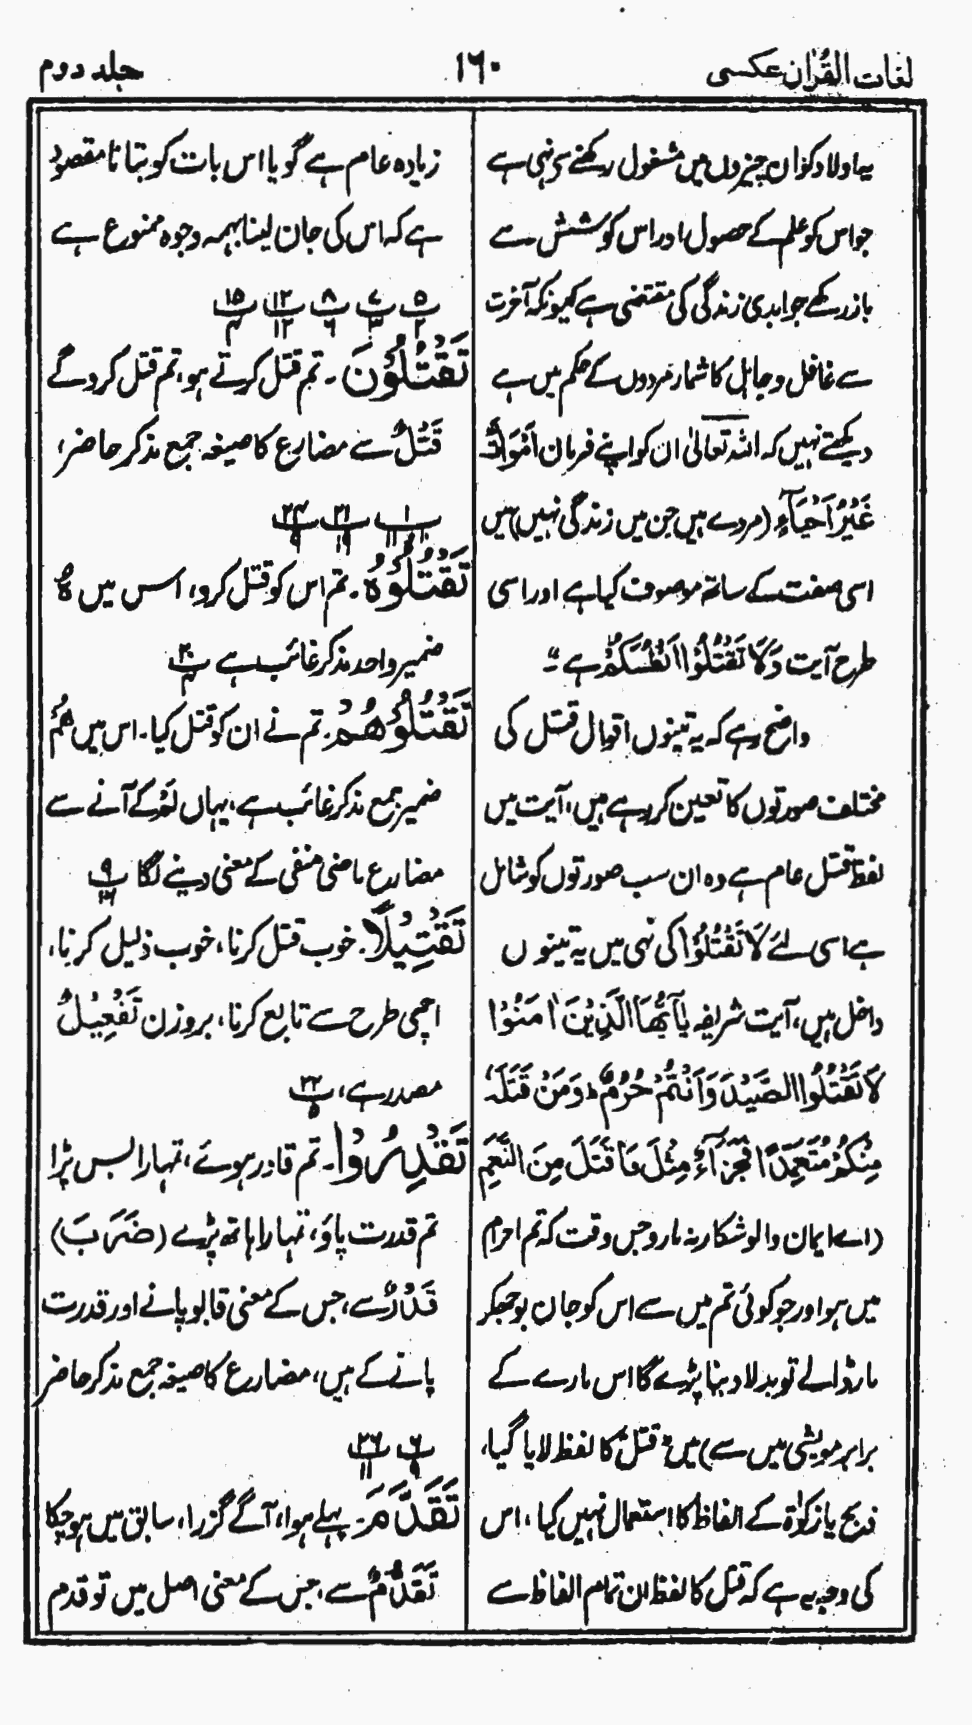 لغات القرآن عکسی
۱۶۰
جلد دوم
یہ اولاد کو ان چیزوں میں مشغول رکھنے سے نہی ہے
جو اس کو علم کے حصول اور اس کو کشش سے
باز رکھے جو ابدی زندگی کی مقتضی ہے کیونکہ آخرت
سے غافل و جاہل کا شمار مردوں کے حکم میں ہے
دیکھتے نہیں کہ اللہ تعالیٰ ان کو اپنے فرمان اَمْوَاتٌ
غَیْرُ اَحْیَآءٍ (مردے ہیں جن میں زندگی نہیں) میں
اسی صفت کے ساتھ موصوف کیا ہے اور اسی
طرح آیت وَلَا تَقْتُلُوْا اَنْفُسَکُمْ ہے ۔"
واضح رہے کہ یہ تینوں اقوال قتل کی
مختلف صورتوں کا تعین کر رہے ہیں، آیت میں
لفظ قتل عام ہے وہ ان سب صورتوں کو شامل
ہے اسی لئے لَا تَقْتُلُوْا کی نہی میں یہ تینوں
داخل ہیں، آیت شریفہ یٰۤاَیُّھَا الَّذِیْنَ اٰمَنُوْا
لَا تَقْتُلُوا الصَّیْدَ وَاَنْتُمْ حُرُمٌ ؕ وَمَنْ قَتَلَہٗ
مِنْکُمْ مُّتَعَمِّدًا فَجَزَآءٌ مِّثْلُ مَا قَتَلَ مِنَ النَّعَمِ
(اے ایمان والو شکار نہ مارو جس وقت کہ تم احرام
میں ہو اور جو کوئی تم میں سے اس کو جان بوجھکر
مار ڈالے تو بدلا دینا پڑے گا اس مارے کے
برابر مویشی میں سے) میں قتل کا لفظ لایا گیا،
ذبح یا زکوٰۃ کے الفاظ کا استعمال نہیں کیا، اس
کی وجہ یہ ہے کہ قتل کا لفظ ان تمام الفاظ سے
زیادہ عام ہے گویا اس بات کو بتانا مقصود
ہے کہ اس کی جان لینا بہمہ وجوہ ممنوع ہے
۵ ۷ ۸ ۱۲ ۱۵
۲ ۳ ۶ ۱۲ ۴
تَقْتُلُوْنَ۔ تم قتل کرتے ہو، تم قتل کرو گے
قَتْلٌ سے مضارع کا صیغہ جمع مذکر حاضر،
۱ ۲۱ ۲۴
تَقْتُلُوْہُ۔ تم اس کو قتل کرو، اس میں ہُ
ضمیر واحد مذکر غائب ہے ۲۰
تَقْتُلُوْھُمْ۔ تم نے ان کو قتل کیا۔ اس میں ھُمْ
ضمیر جمع مذکر غائب ہے، یہاں لَمْ کے آنے سے
مضارع ماضی منفی کے معنی دینے لگا ۹
تَقْتِیْلًا۔ خوب قتل کرنا، خوب ذلیل کرنا،
اچھی طرح سے تابع کرنا، بروزن تَفْعِیْلٌ
مصدر ہے، ۲۲
تَقْدِرُوْا۔ تم قادر ہوئے، تمہارا بس پڑا
تم قدرت پاؤ، تمہارا ہاتھ پڑے (ضَرَبَ)
قَدْرٌ سے، جس کے معنی قابو پانے اور قدرت
پانے کے ہیں، مضارع کا صیغہ جمع مذکر حاضر
۶ ۲۶
۹ ۱۱
تَقَدَّمَ۔ پہلے ہوا، آگے گزرا، سابق میں ہو چکا
تَقَدُّمٌ سے، جس کے معنی اصل میں تو قدم